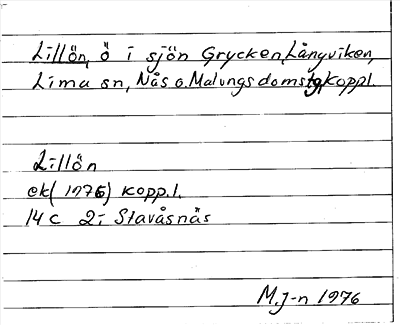 Lillön, ö i sjön Grycken, Långviken,
Lima sn, Nås o. Malungs domstg, Koppl.
Lillön
ek (1976) Kopp.l.
14 C 2i Stavåsnäs
M.J-n 1976